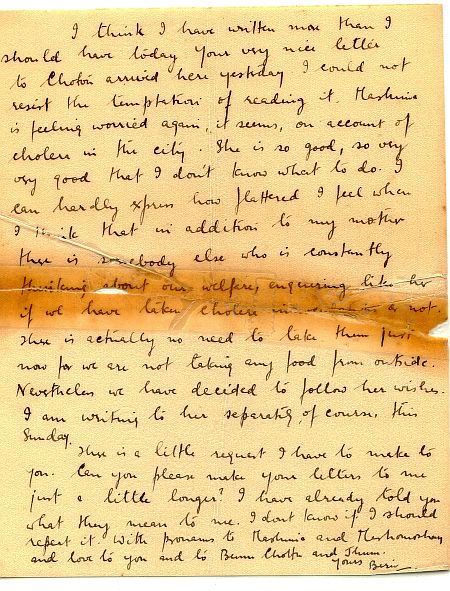 I think I have written more than I
should have today. Your very nice letter
to Choton arrived here yesterday I could not
resist the temptation of reading it. Mashima
is feeling worried again, it seems, on account of
cholera in the city. She is so good, so very
very good that I don't know what to do. I
can hardly express how flattered I feel when
I think that in addition to my mother
there is somebody else who is constantly
thinking about our welfare, enquiring like her
if we have taken cholera or not.
There is actually no need to take them just
now for we are not taking any food from outside.
Nevertheless we have decided to follow her wishes.
I am writing to her separately, of course, this
Sunday.
There is a little request I have to make to
you. Can you please make your letters to me
just a little longer? I have already told you
what they mean to me. I dont know if I should
repeat it. With pronams to Mashima and
and love to you and to Choton and
Yours